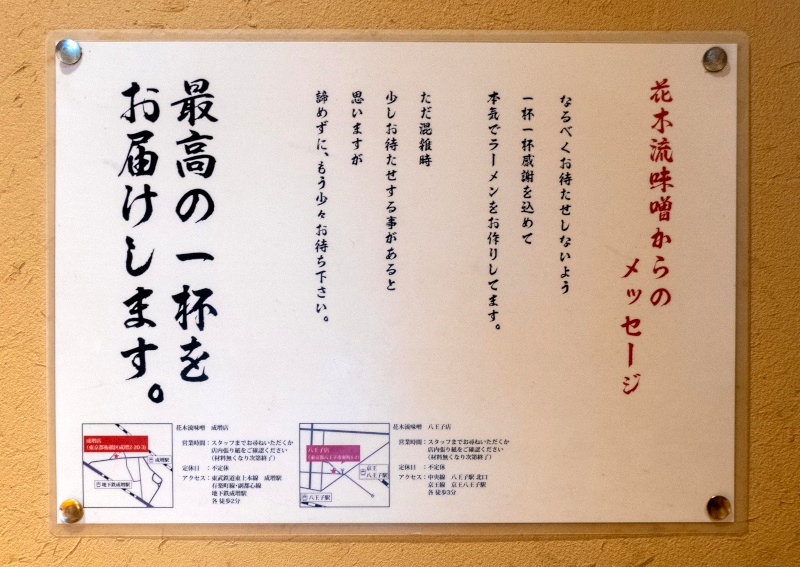 花木流味噌からの
メッセージ
なるべくお待たせしないよう
一杯一杯感謝を込めて
本気でラーメンをお作りしてます。
ただ混雑時
少しお待たせする事があると
思いますが
諦めずに、もう少々お待ち下さい。
最高の一杯を
お届けします。
成増店
(東京都板橋区成増2-20-3)
成増駅
地下鉄成増駅
花木流味噌 成増店
営業時間:スタッフまでお尋ねいただくか
店内張り紙をご確認ください
(材料無くなり次第終了)
定休日 :不定休
アクセス:東武鉄道東上本線 成増駅
有楽町線・副都心線
地下鉄成増駅
各 徒歩2分
八王子店
京王
八王子駅
八王子駅
花木流味噌 八王子店
営業時間:スタッフまでお尋ねいただくか
店内張り紙をご確認ください
(材料無くなり次第終了)
定休日 :不定休
アクセス:中央線 八王子駅 北口
京王線 京王八王子駅
各 徒歩3分